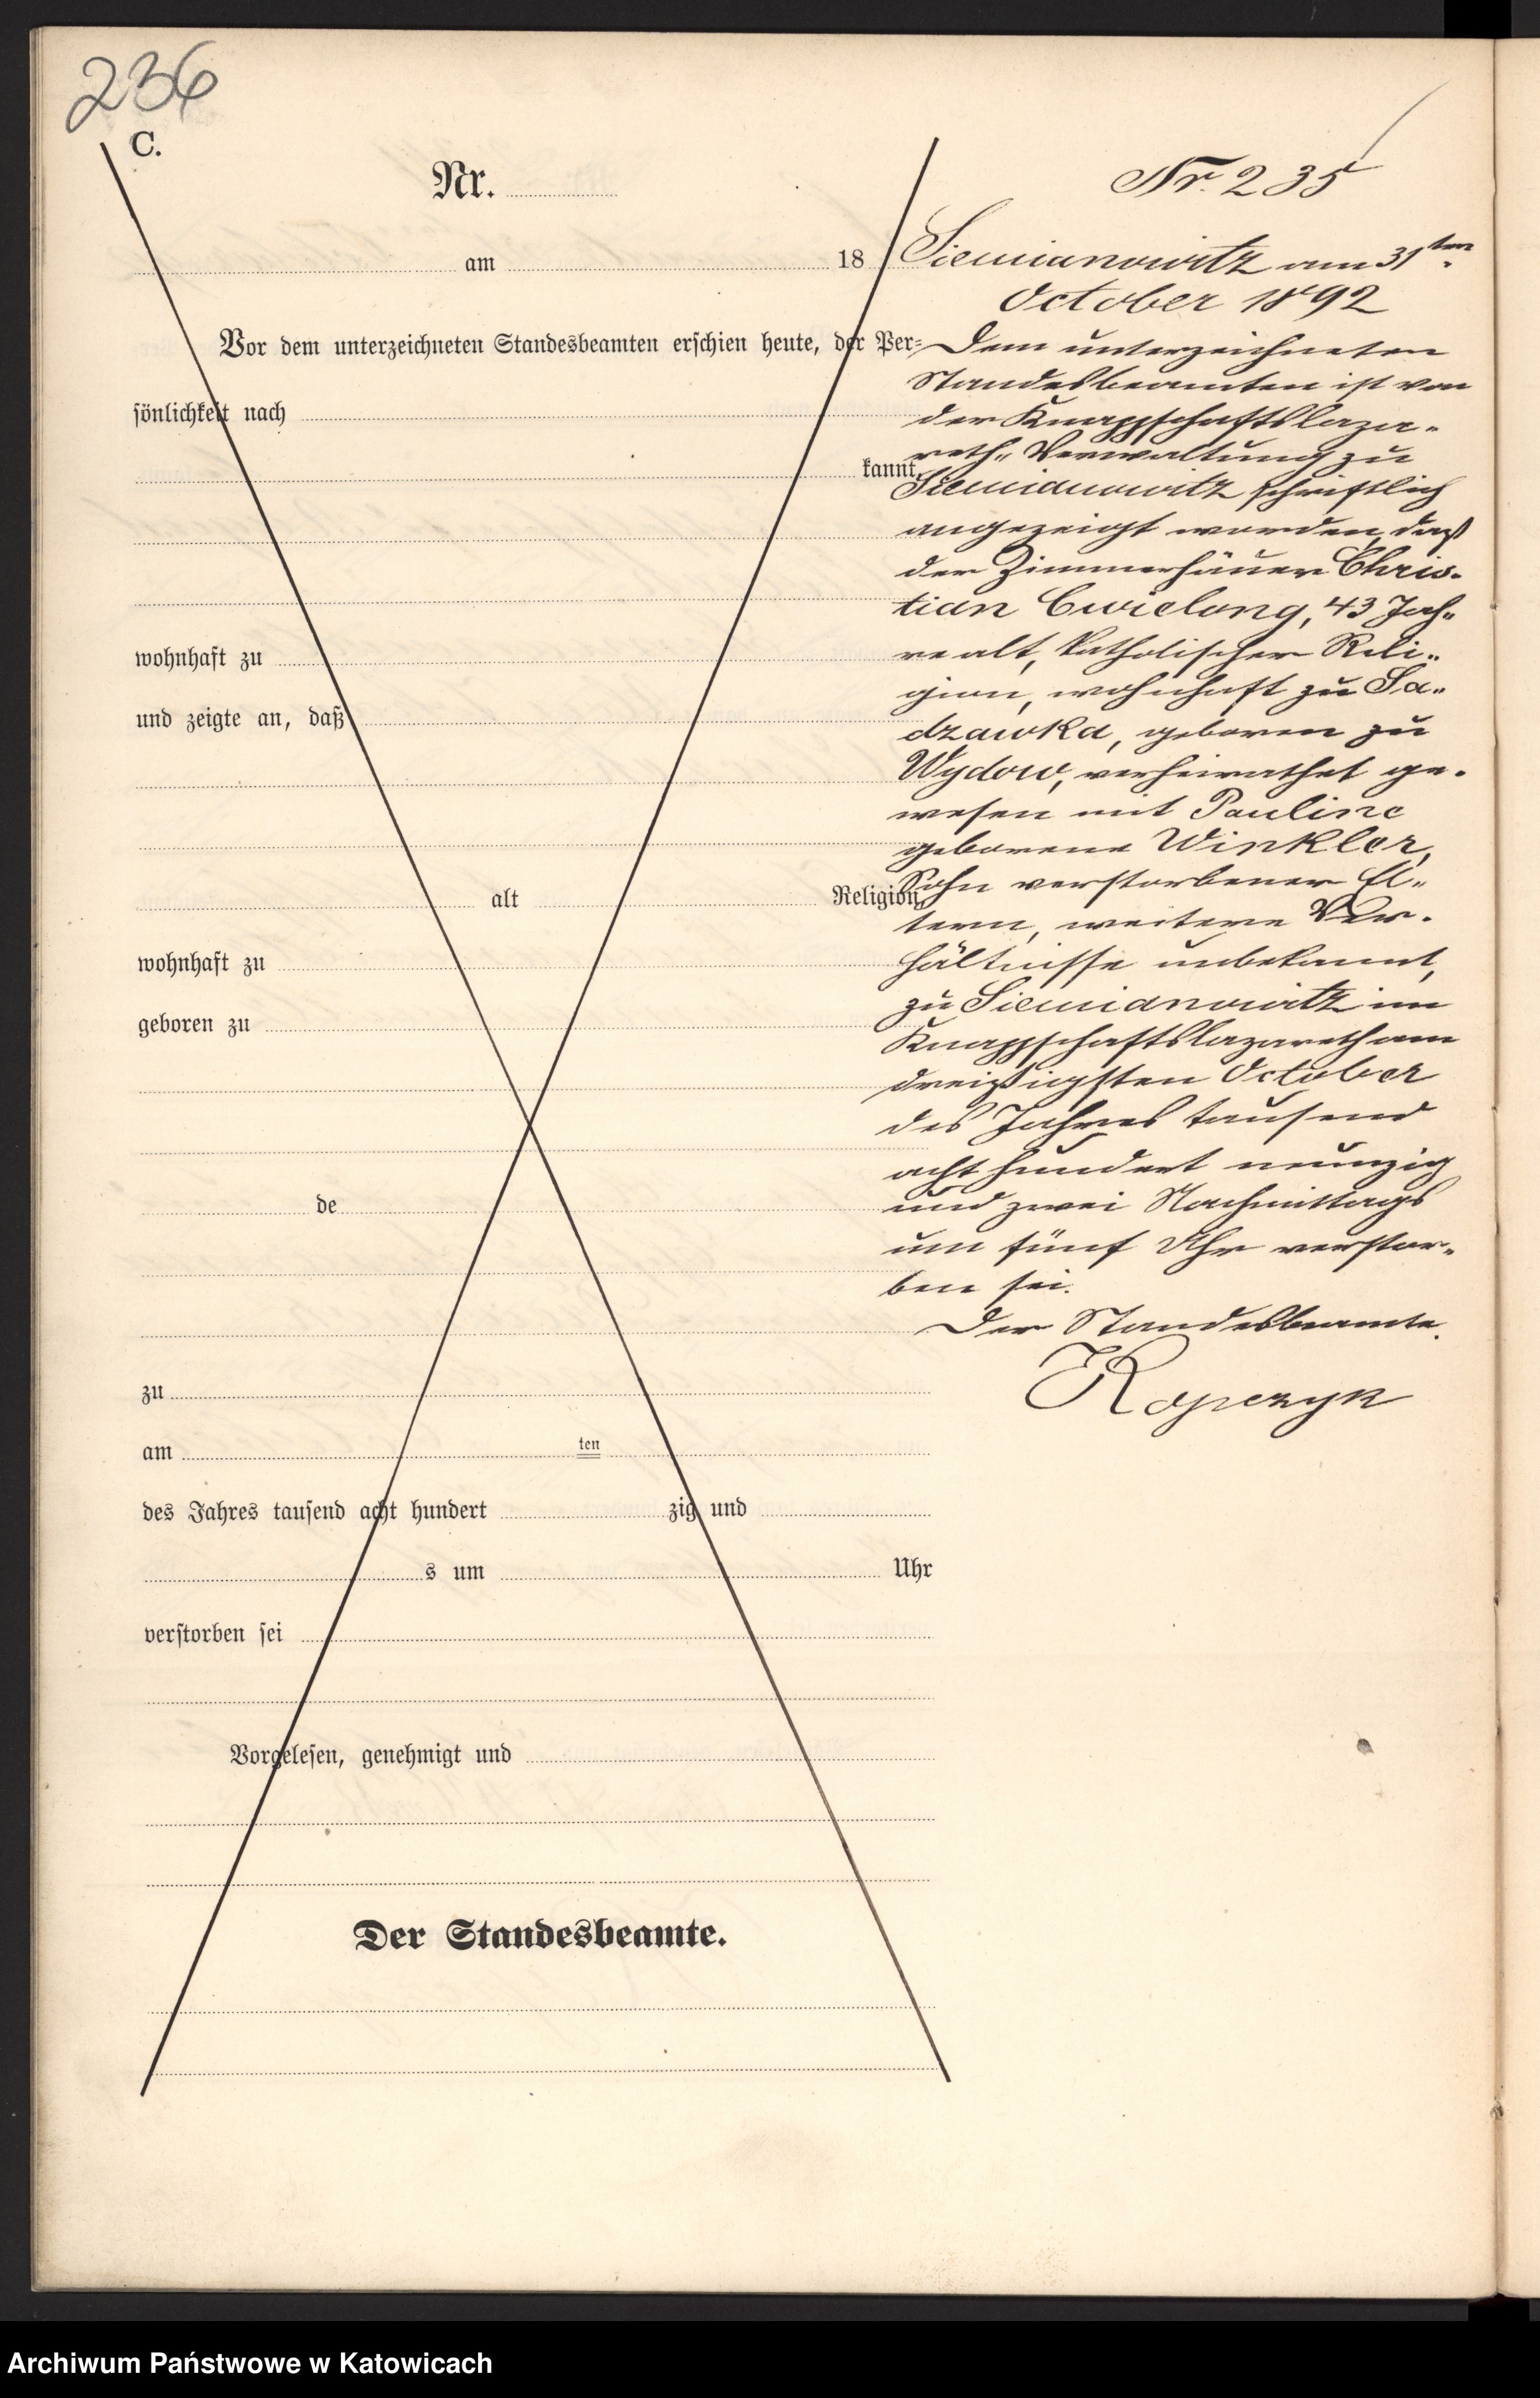 236
C.
Nr.
am 18
Vor dem unterzeichneten Standesbeamten erschien heute, der Per-
sönlichkeit nach
kannt,
wohnhaft zu
und zeigte an, daß
alt Religion,
wohnhaft zu
geboren zu
de
zu
am ten
des Jahres tausend acht hundert zig und
s um Uhr
verstorben sei
Vorgelesen, genehmigt und
Der Standesbeamte.
Nr. 235
Siemianowitz am 31ten
October 1892
Dem unterzeichneten
Standesbeamten ist von
der Knappschaftslaza-
reth-Verwaltung zu
Siemianowitz schriftlich
angezeigt worden, daß
der Zimmerhäuer Chris-
tian Cwielong, 43 Jah-
re alt, katholischer Reli-
gion, wohnhaft zu Sa-
dzawka, geboren zu
Wydow, verheirathet ge-
wesen mit Pauline
geborene Winkler,
Sohn verstorbener El-
tern, weitere Ver-
hältnisse unbekannt,
zu Siemianowitz im
Knappschaftslazareth am
dreißigsten October
des Jahres tausend
acht hundert neunzig
und zwei Nachmittags
um fünf Uhr verstor-
ben sei.
Der Standesbeamte.
Kopczyk
Archiwum Państwowe w Katowicach